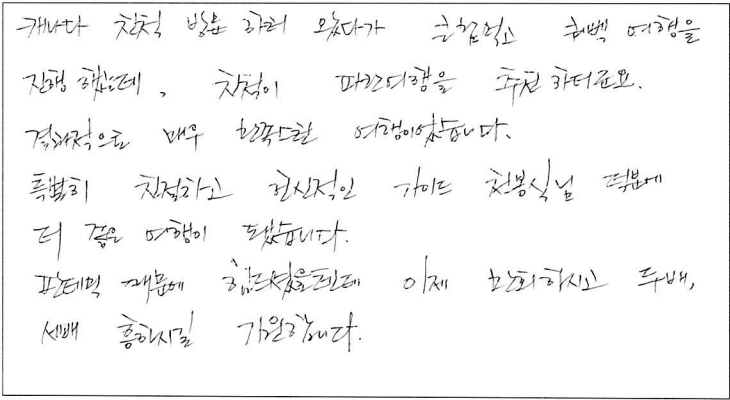 캐나다 친척 방문 하러 왔다가 큰맘먹고 퀘벡 여행을
진행 했는데, 친척이 파란여행을 추천 하더군요.
결과적으로 매우 만족스러운 여행이었습니다.
특별히 친절하고 헌신적인 가이드 천봉식님 덕분에
더 좋은 여행이 됐습니다.
판데믹 때문에 힘드셨을텐데 이제 만회하시고 두배,
세배 흥하시길 기원합니다.